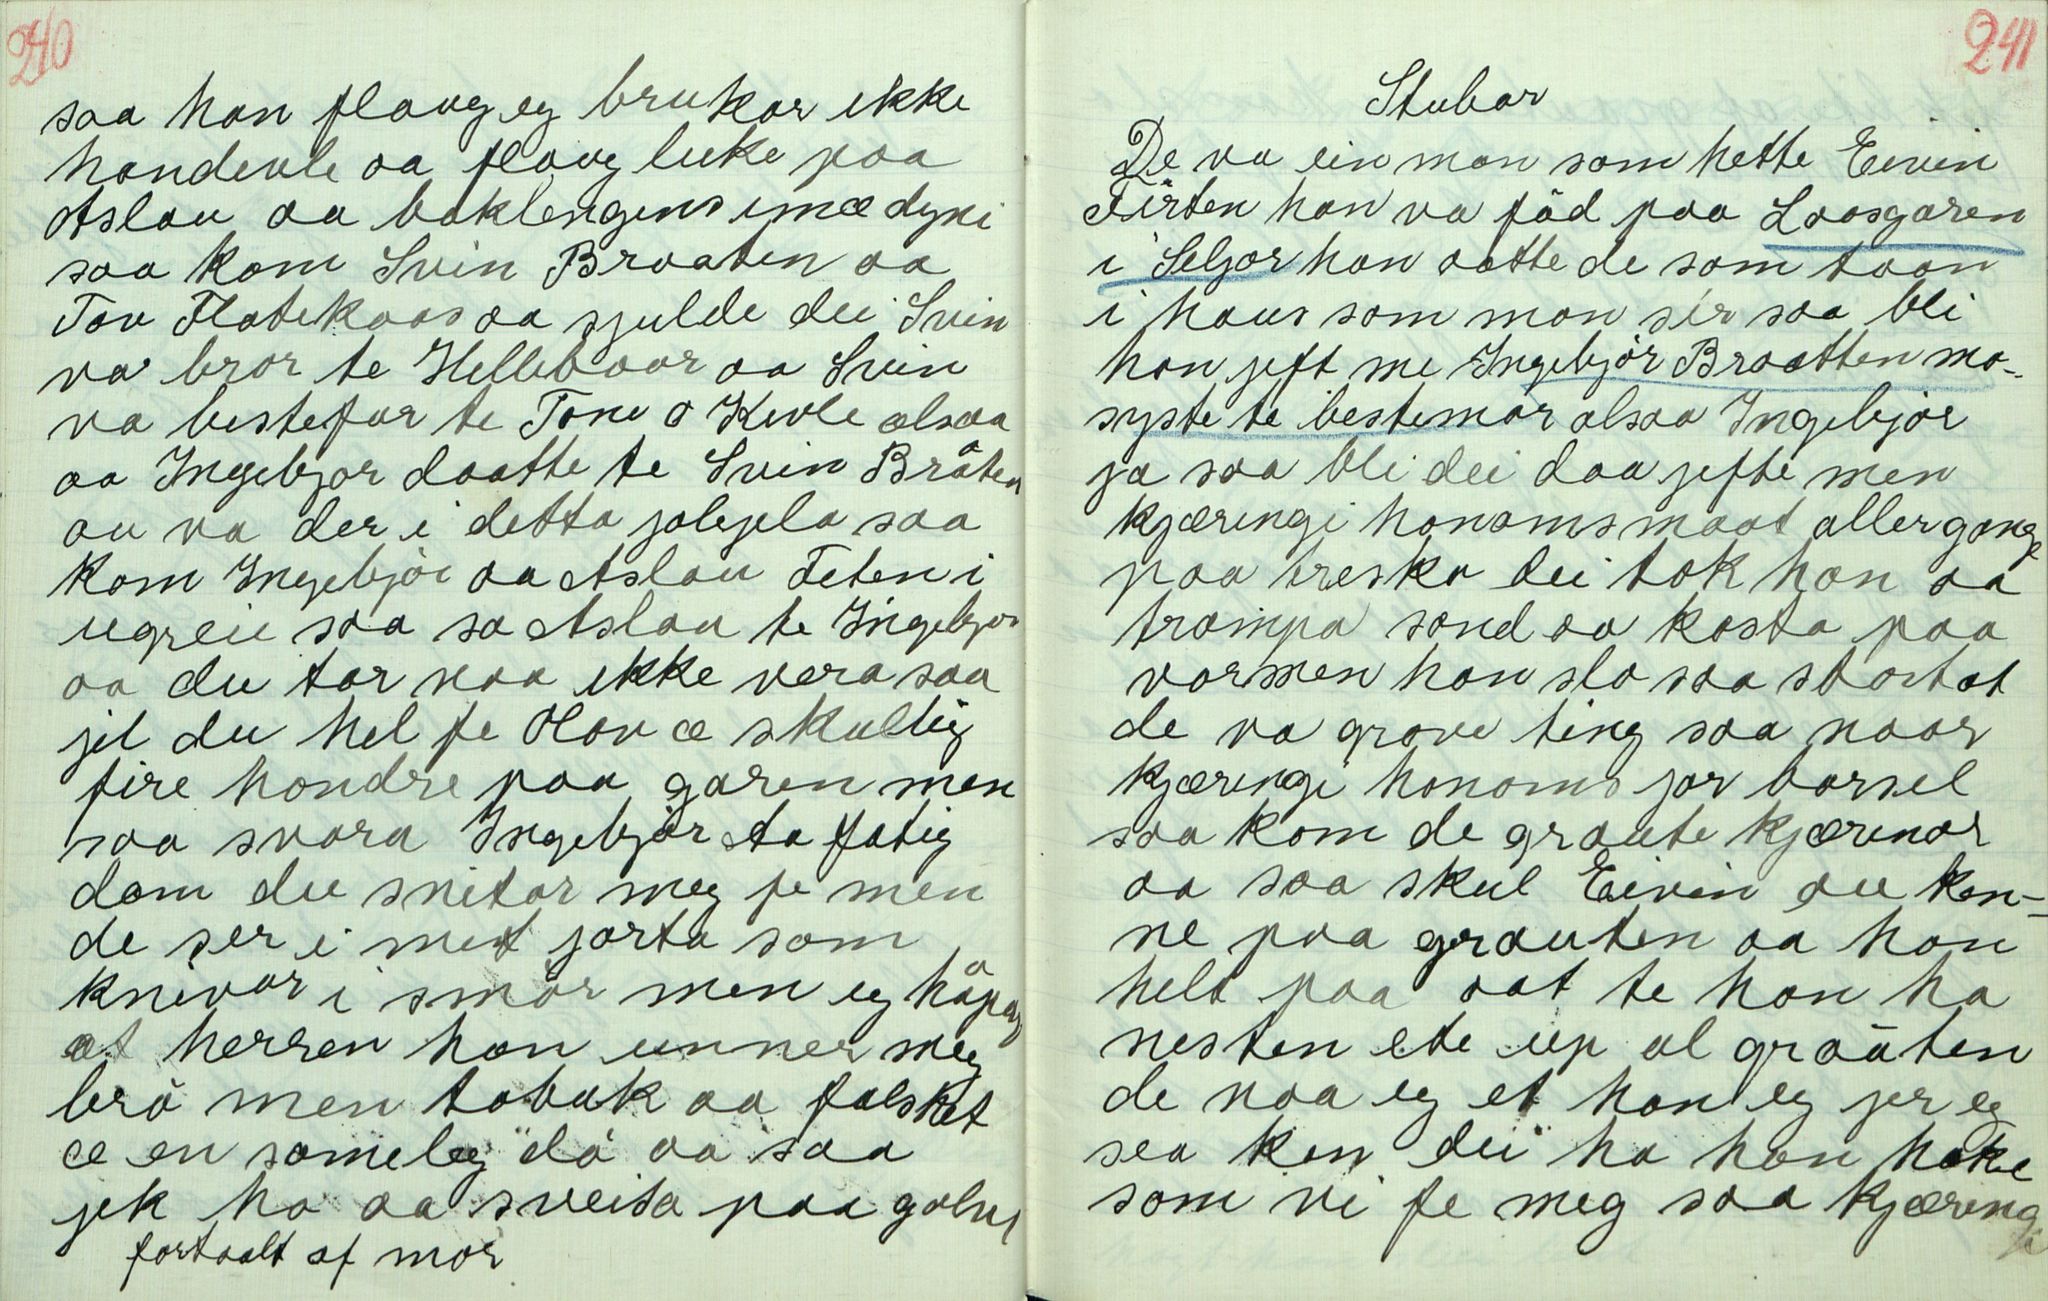 240
saa han flaag eg brukar ikke
handevle aa flaag like paa
Aslau aa baklengens imæ dyni
saa kom Svin Braaten aa
Tov Flatekaas aa sjulde dei Svin
va bror te Hellebaar aa Svin
va bestefar te Tone o Kivle alsaa
aa Ingebjor daatte te Svin Bråten
au va der i detta jolejela saa
kom Ingebjör aa Aslau Teten i
ugreie saa sa Aslau te Ingebjor
aa du tar naa ikke vera saa
jil du hel fe Olav æ skuldig
fire hondre paa garen men
saa svara Ingebjör Aa fatig
dom du snitar meg fe men
de ser i mit jorta som
knivar i smör men eg håpas
at herren han unner meg
brö men tobak aa falsket
æ en someleg då aa saa
jek ho aa sveisa paa golvet
fortaalt af mor
241
Stubar
De va ein man som hette Eivin
Tirten han va föd paa Laasgaren
i Seljor han aatte de som taan
i haus som man sir saa bli
han jeft me Ingebjör Braatten mo-
syste te bestemor alsaa Ingebjör
ja saa bli dei daa jefte men
kjæringi honoms maat aller gange
paa breska dei tok han aa
trampa sond aa kasta paa
varmen han slo saa stortat
de va grove ting saa naar
kjæringi honoms jor barsel
saa kom de graute kjæringar
aa saa skul Eivin au ken-
ne paa grauten aa han
helt paa aat te han ha
nesten ete up al graäten
de naa eg et han eg jer eg
sea ken dei ha han hake
som vi fe meg saa kjæringi